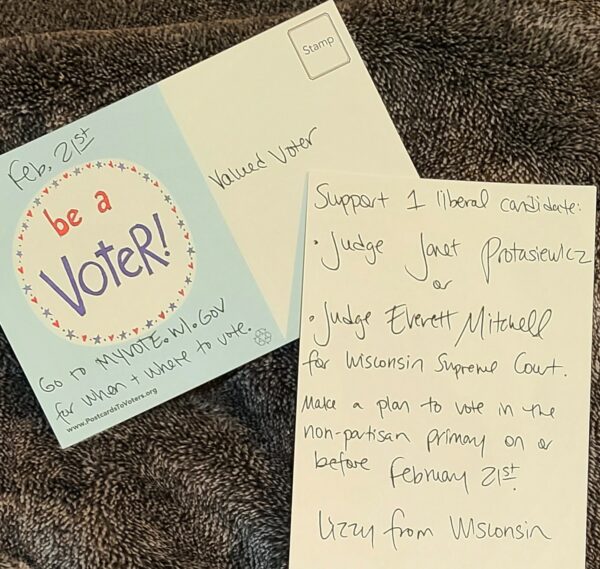 Stamp
Feb. 21st
be a
VoteR!
Valued Voter
Go to MYVOTE.WI.GOV
for when + where to vote.
www.PostcardsToVoters.org
Support 1 liberal candidate:
• Judge Janet Protasiewicz
or
• Judge Everett Mitchell
for Wisconsin Supreme Court.
Make a plan to vote in the
non-partisan primary on or
before February 21st.
Lizzy from Wisconsin